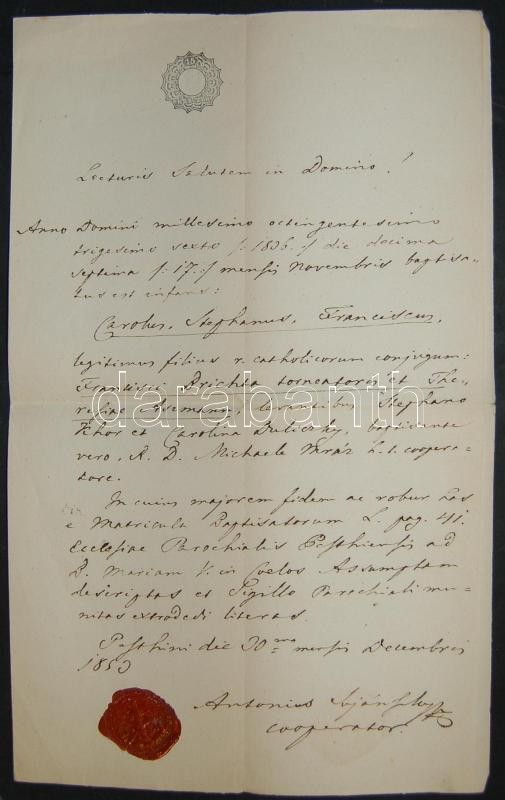 Lecturis Salutem in Domino!
Anno Domini millesimo octingentesimo
trigesimo sexto /: 1836 :/ die decima
septima /: 17. :/ mensis Novembris baptisa-
tus est infans:
Carolus, Stephanus, Franciscus,
legitimus filius r. catholicorum conjugum:
Francisci Drichta torneatoris et The-
resiae levantibus Stephano
et Carolina baptisante
vero, A. D. Michaele L. t. coopera-
tore.
In cuius majorem fidem ac robur has
e Matricula Baptisatorum L. pag. 41.
Ecclesiae Parochialis Pesthiensis ad
B. Mariam V. in Coelos Assumptam
descriptas et Sigillo Parochiali mu-
nitas extradedi literas.
Pesthini die 30ma mensis Decembris
1853
Antonius
cooperator.
darabanth